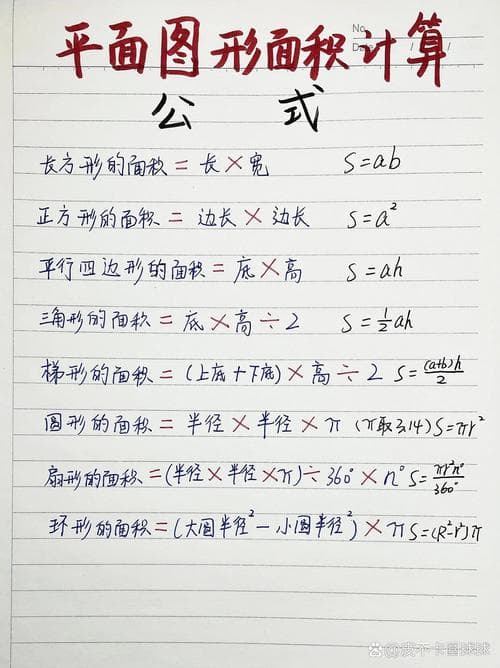 No.
Date
平面图形面积计算
公 式
长方形的面积 = 长 × 宽 S=ab
正方形的面积 = 边长 × 边长 S=a²
平行四边形的面积 = 底 × 高 S=ah
三角形的面积 = 底 × 高 ÷ 2 S=½ah
梯形的面积 = (上底+下底) × 高 ÷ 2 S=(a+b)h/2
圆形的面积 = 半径 × 半径 × π (π取3.14) S=πr²
扇形的面积 = (半径 × 半径 × π) ÷ 360° × n° S=πr²n°/360°
环形的面积 = (大圆半径² - 小圆半径²) × π S=(R²-r²)π